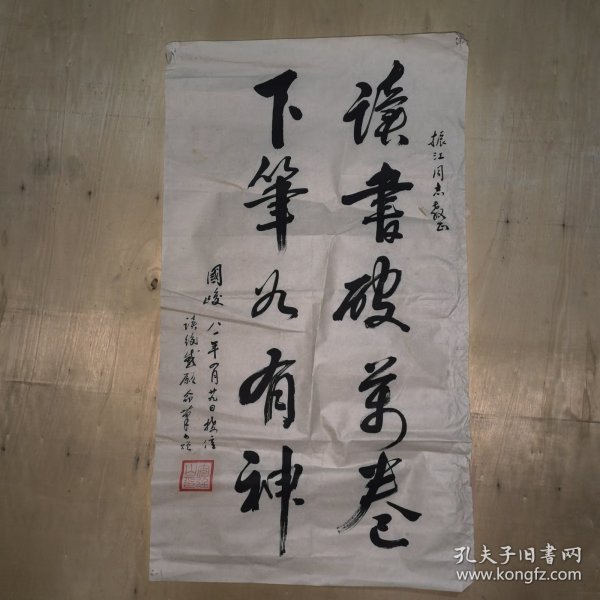 振江同志教正
讀書破萬卷
下筆如有神
國峻 八一年四月廿九日
孔夫子旧书网
www.kongfz.com